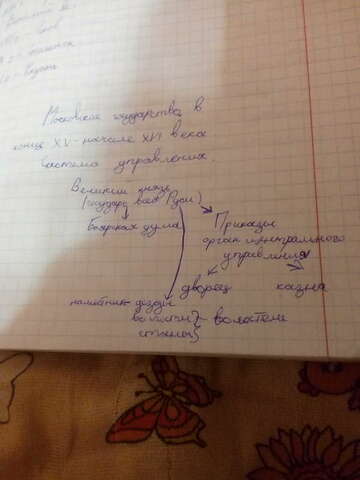 Московское государство в
конце XV - начале XVI века
система управления.
Великий князь
(государь всея Руси)
Боярская дума
Приказы
орган центрального
управления
дворец казна
наместник
волости } - волостели
станы }